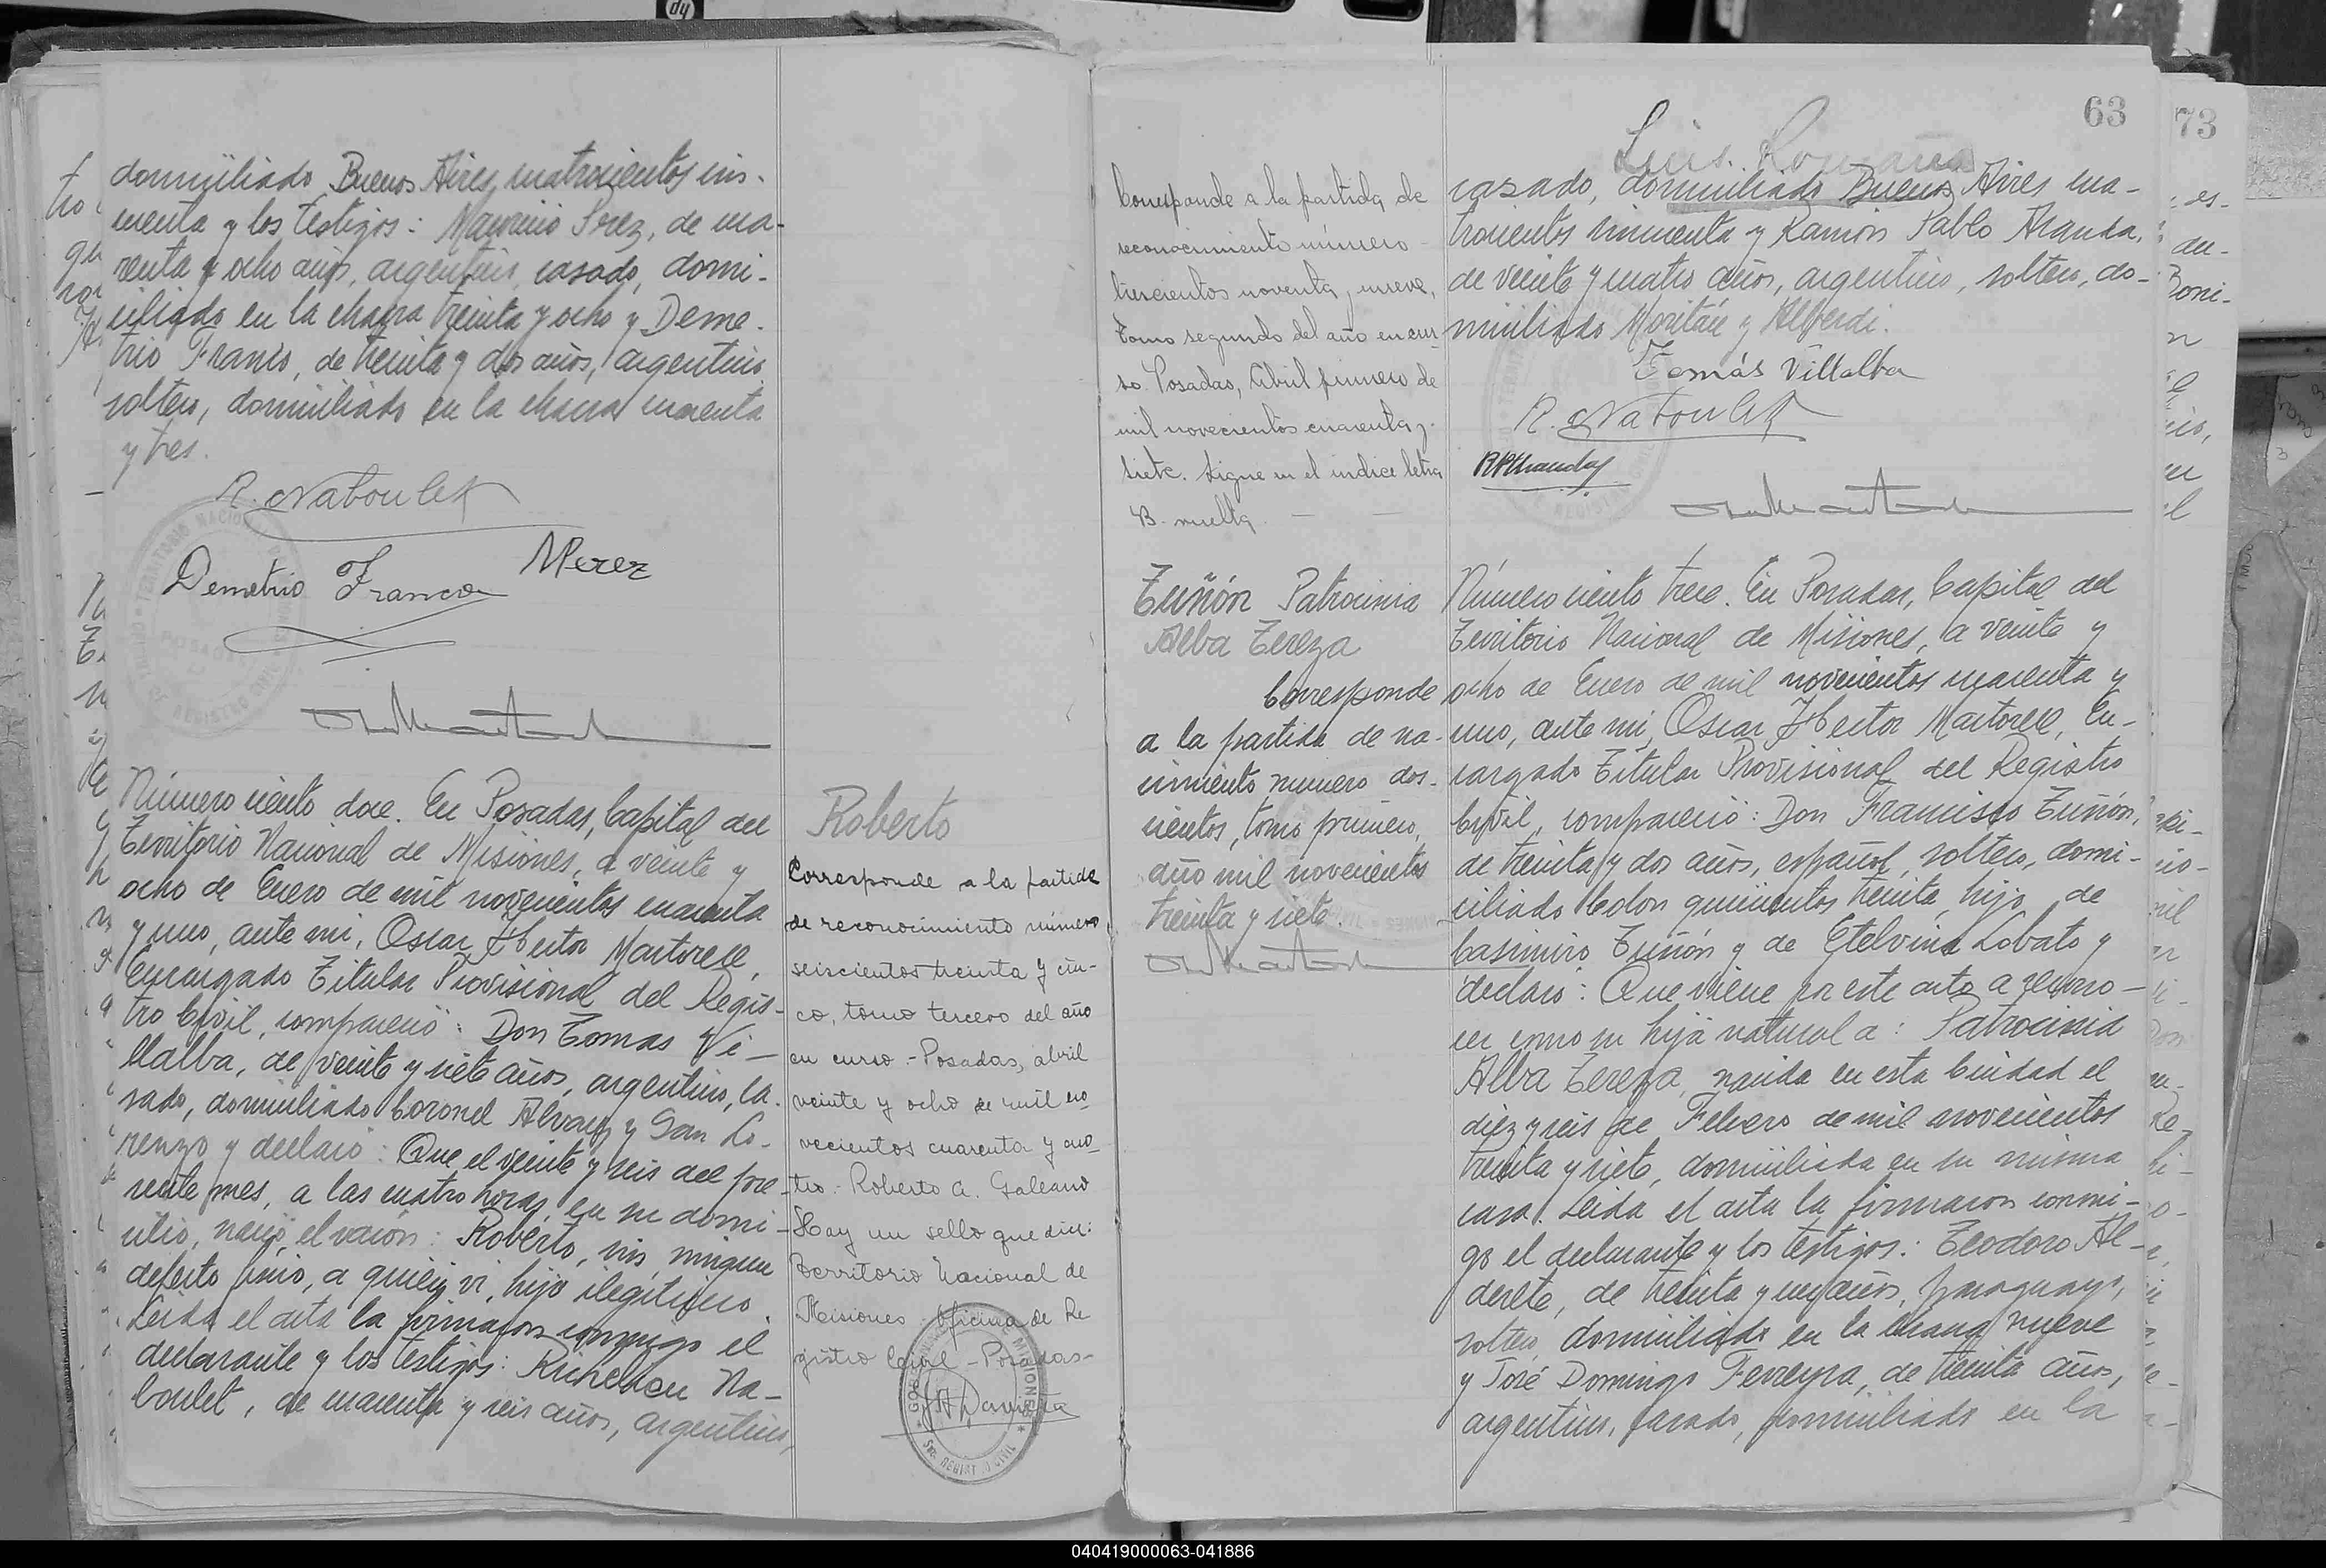 domiciliado Buenos Aires, cuatrocientos cin-
cuenta y los testigos: Mauricio Perez, de cua-
renta y ocho años, argentino, casado, domi-
ciliado en la chacra treinta y ocho y Deme-
trio Franco, de treinta y dos años, argentino
soltero, domiciliado en la chacra cuarenta
y tres.
R. Naboulet
Demetrio Franco
MPerez
Número ciento doce. En Posadas, Capital del
Territorio Nacional de Misiones, a veinte y
ocho de Enero de mil novecientos cuarenta
y uno, ante mi, Oscar Hector Martorell,
Encargado Titular Provisional del Regis-
tro Civil, compareció: Don Tomas Vi-
llalba, de veinte y siete años, argentino, ca-
sado, domiciliado Coronel Alvarez y San Lo-
renzo y declaró: Que el veinte y seis del pre-
sente mes, a las cuatro horas, en su domi-
cilio, nació el varón: Roberto, sin ningun
defecto fisico, a quien vi, hijo ilegítimo.
Leida el acta la firmaron conmigo el
declarante y los testigos: Richelieu Na-
boulet, de cuarenta y seis años, argentino,
Roberto
Corresponde a la partida
de reconocimiento número
seiscientos treinta y cin-
co, tomo tercero del año
en curso.-Posadas, abril
veinte y ocho de mil no
vecientos cuarenta y cua
tro. Roberto A. Galeano
Hay un sello que dice:
Territorio Nacional de
Misiones Oficina de Re
gistro Civil - Posadas-
63
73
Luis
Corresponde a la partida de
reconocimiento número
trescientos noventa y nueve,
tomo segundo del año en cur
so. Posadas, Abril primero de
mil novecientos cuarenta y
siete. Sigue en el indice letra
B. vuelta.
casado, domiciliado Buenos Aires cua-
trocientos cincuenta y Ramón Pablo Aranda,
de veinte y cuatro años, argentino, soltero, do-
miciliado Moritán y Alberdi.
Tomás Villalba
R. Naboulet
RPAranda
Tuñón Patrocinia
Alba Tereza
Corresponde
a la partida de na-
cimiento numero dos-
cientos, tomo primero,
año mil novecientos
treinta y siete.
Número ciento trece. En Posadas, Capital del
Territorio Nacional de Misiones, a veinte y
ocho de Enero de mil novecientos cuarenta y
uno, ante mi, Oscar Hector Martorell, En-
cargado Titular Provisional del Registro
Civil, compareció: Don Francisco Tuñón,
de treinta y dos años, español, soltero, domi-
ciliado Colon quinientos treinta, hijo de
Casimiro Tuñón y de Etelvina Lobato y
declaró: Que viene por este acto a recono-
cer como su hija natural a: Patrocinia
Alba Tereza, nacida en esta Ciudad el
diez y seis de Febrero de mil novecientos
treinta y siete, domiciliada en su misma
casa. Leida el acta la firmaron conmi-
go el declarante y los testigos: Teodoro Al-
derete, de treinta y un años, paraguayo,
soltero, domiciliado en la chacra nueve
y José Domingo Ferreyra, de treinta años,
argentino, casado, domiciliado en la
040419000063-041886